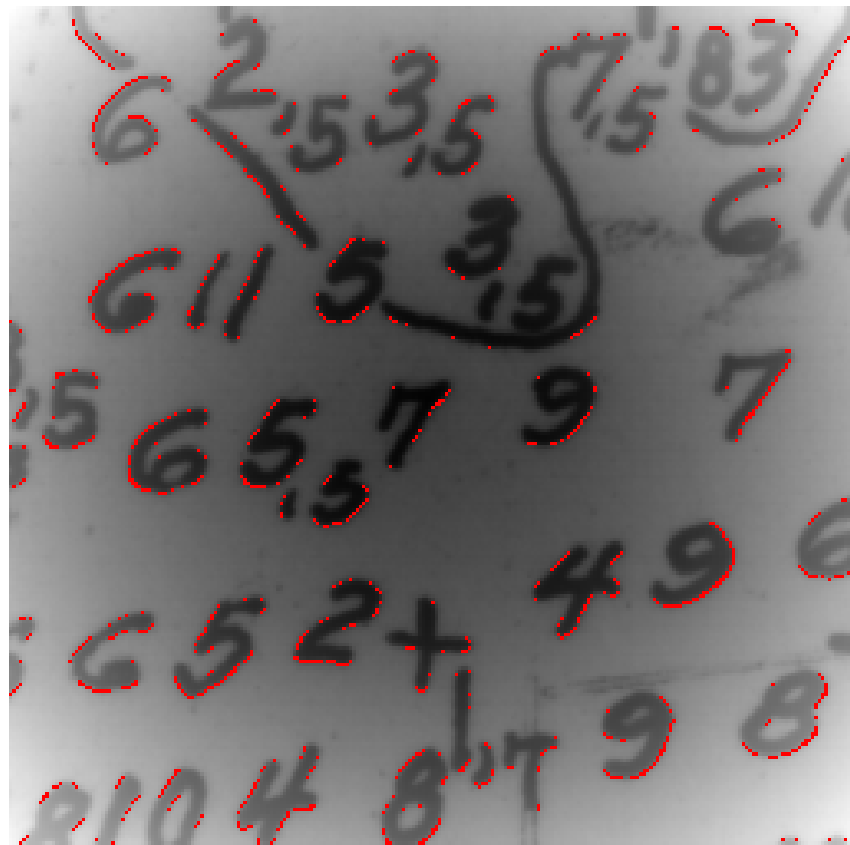 6 2,5 3,5 7,5 1,83
6 11 5 3,5 6
,5 6 5,5 7 9 7
6 5 2+ 4 9 6
8 10 4 8 1,7 9 8